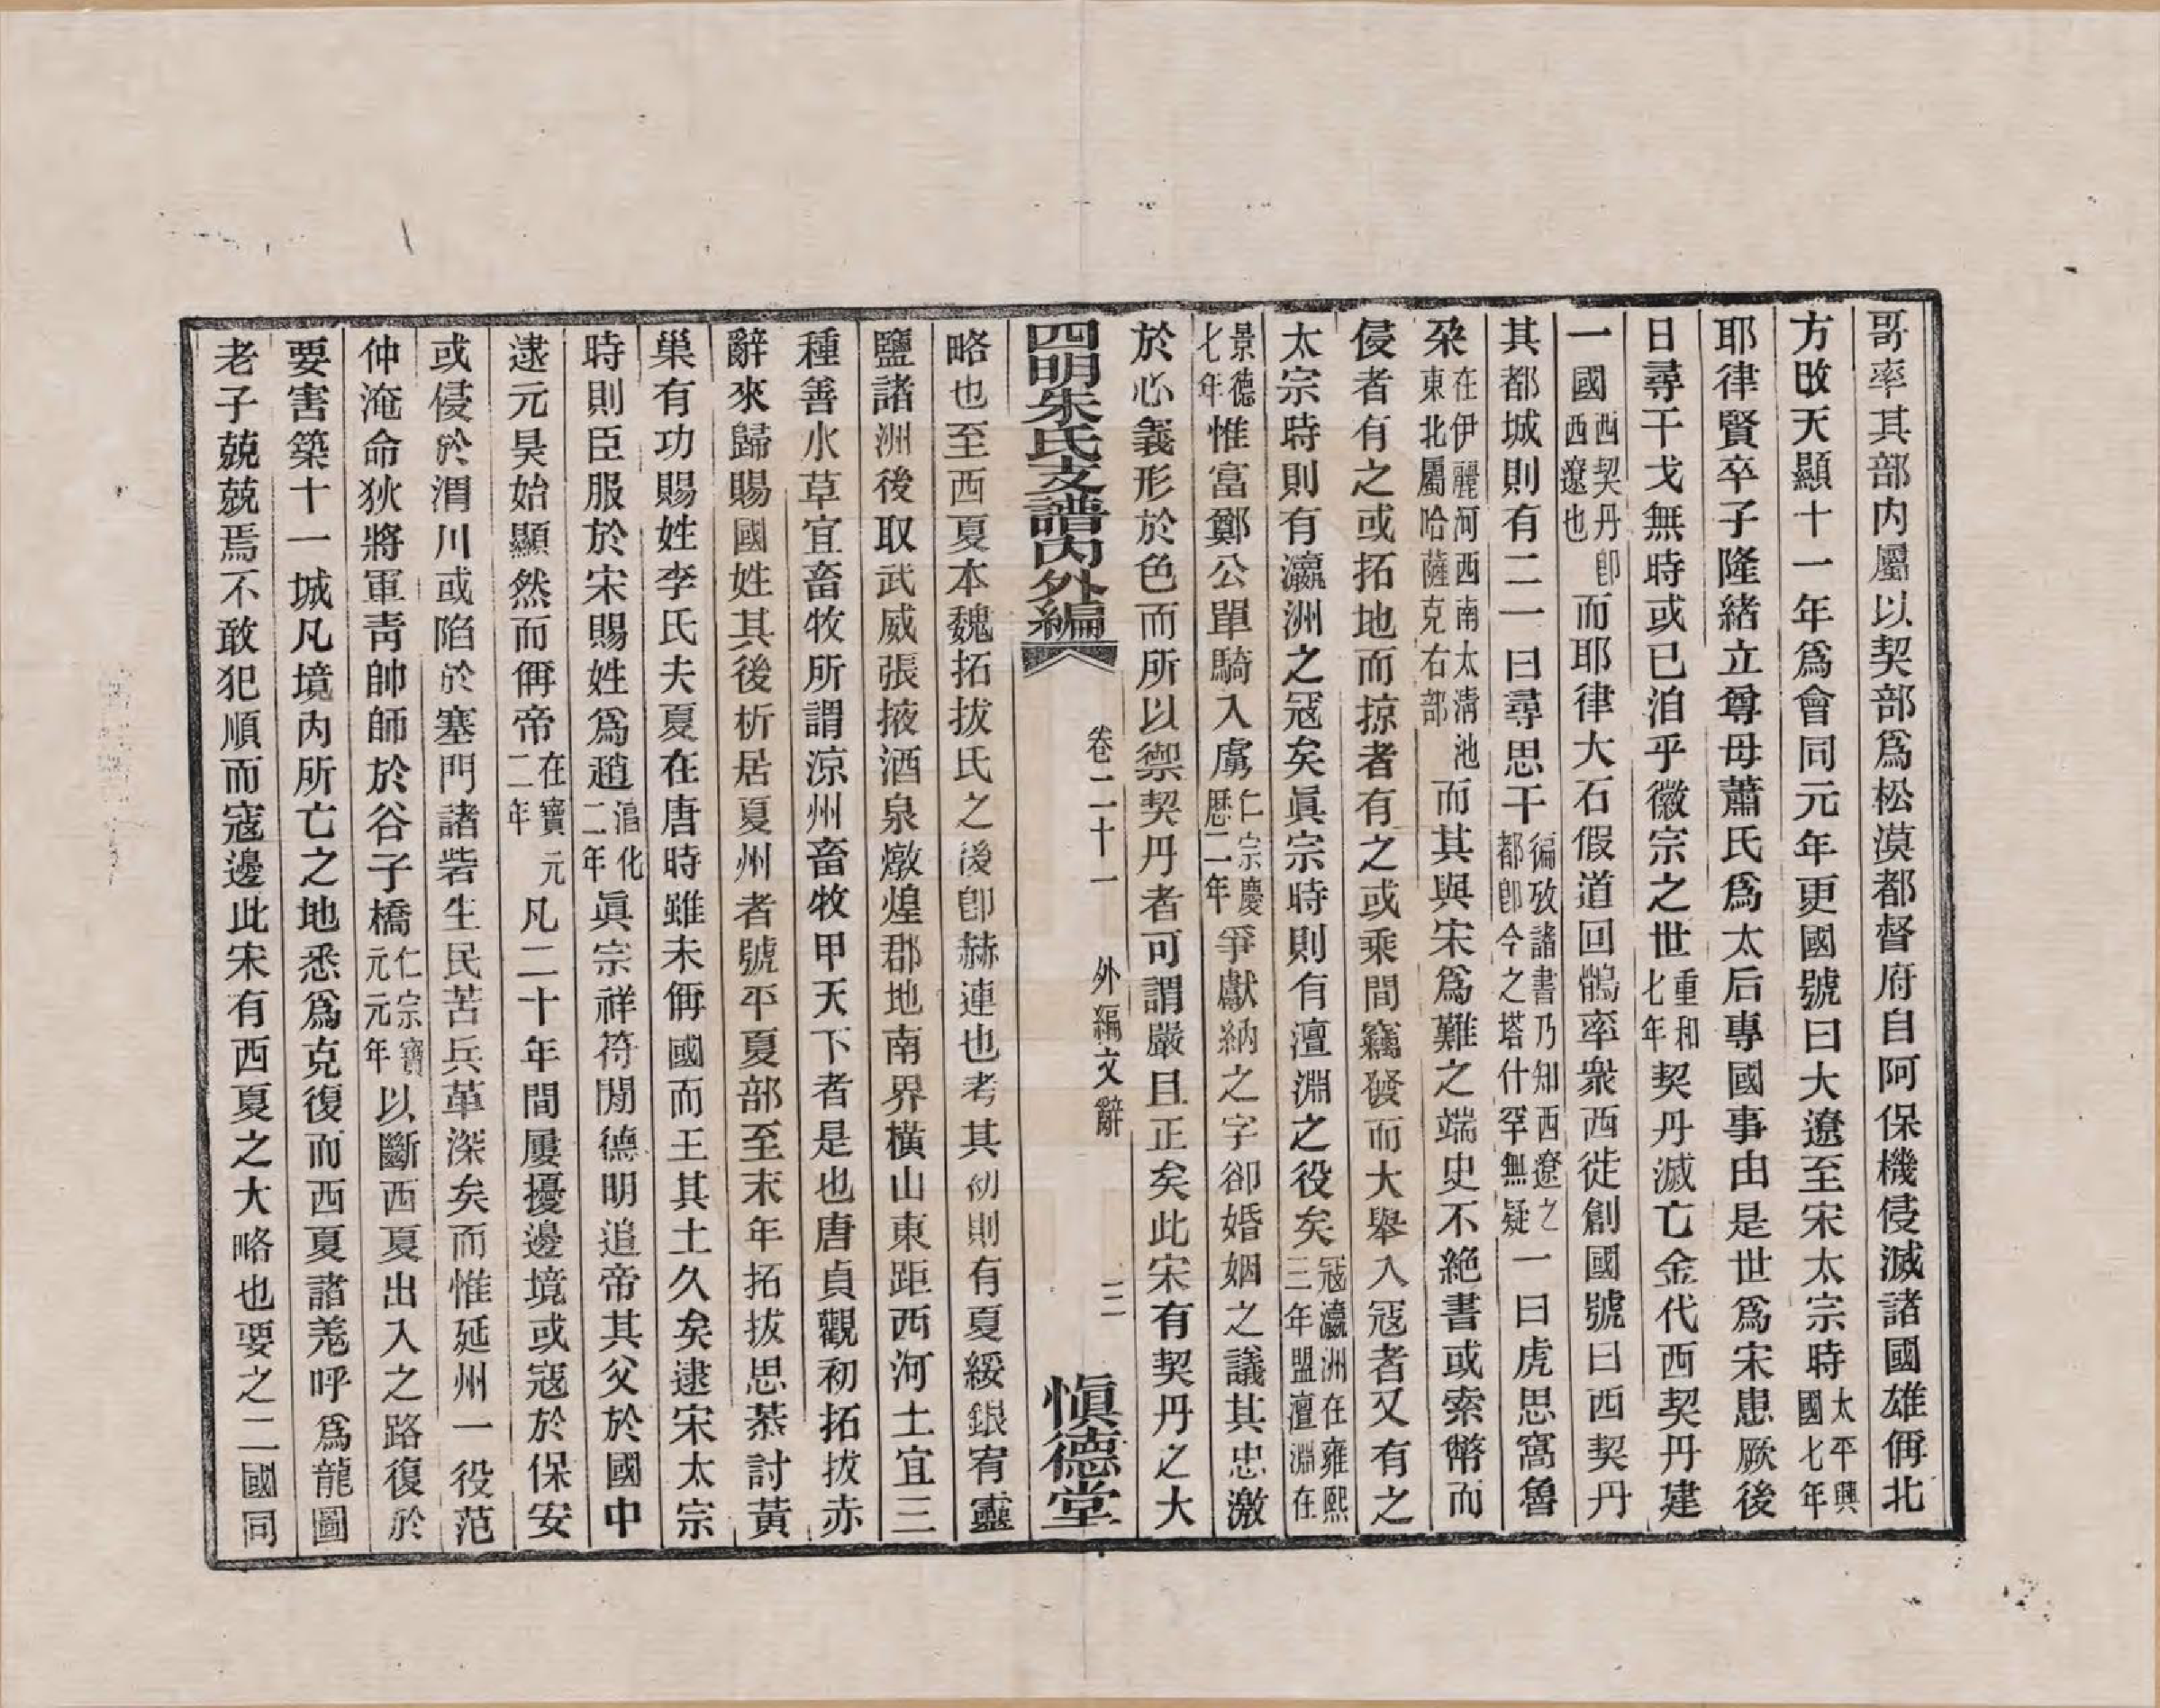 哥率其部内屬以契部爲松漠都督府自阿保機侵滅諸國雄偁北
方改天顯十一年爲會同元年更國號曰大遼至宋太宗時太平興國七年
耶律賢卒子隆緒立尊母蕭氏爲太后專國事由是世爲宋患厥後
日尋干戈無時或已洎乎徽宗之世重和七年契丹滅亡金代西契丹建
一國西契丹卽西遼也而耶律大石假道回鶻率衆西徙創國號曰西契丹
其都城則有二一曰尋思干徧攷諸書乃知西遼之都卽今之塔什罕無疑一曰虎思窩魯
朶在伊麗河西南太淸池東北屬哈薩克右部而其與宋爲難之端史不絶書或索幣而
侵者有之或拓地而掠者有之或乘間竊發而大舉入寇者又有之
太宗時則有瀛洲之寇矣眞宗時則有澶淵之役矣寇瀛洲在雍熙三年盟澶淵在
景德七年惟富鄭公單騎入虜仁宗慶厯二年爭獻納之字卻婚姻之議其忠激
於心義形於色而所以禦契丹者可謂嚴且正矣此宋有契丹之大
四明朱氏支譜内外編
卷二十一
外編文辭
三
愼德堂
略也至西夏本魏拓拔氏之後卽赫連也考其初則有夏綏銀宥靈
鹽諸洲後取武威張掖酒泉燉煌郡地南界橫山東距西河土宜三
種善水草宜畜牧所謂涼州畜牧甲天下者是也唐貞觀初拓拔赤
辭來歸賜國姓其後析居夏州者號平夏部至末年拓拔思恭討黃
巢有功賜姓李氏夫夏在唐時雖未偁國而王其土久矣逮宋太宗
時則臣服於宋賜姓爲趙淳化二年眞宗祥符閒德明追帝其父於國中
逮元昊始顯然而偁帝在寶元二年凡二十年間屢擾邊境或寇於保安
或侵於渭川或陷於塞門諸砦生民苦兵革深矣而惟延州一役范
仲淹命狄將軍靑帥師於谷子橋仁宗寶元元年以斷西夏出入之路復於
要害築十一城凡境内所亡之地悉爲克復而西夏諸羗呼爲龍圖
老子兢兢焉不敢犯順而寇邊此宋有西夏之大略也要之二國同